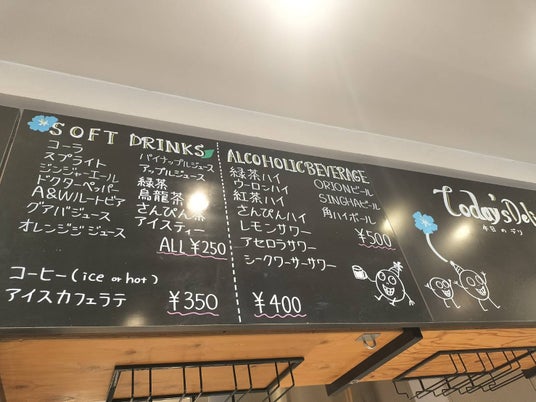 SOFT DRINKS
コーラ
スプライト
ジンジャーエール
ドクターペッパー
A&Wルートビア
グアバジュース
オレンジジジュース
パイナップルジュース
アップルジュース
緑茶
烏龍茶
さんぴん茶
アイスティー
ALL ¥250
コーヒー(ice or hot)
アイスカフェラテ ¥350
ALCOHOLIC BEVERAGE
緑茶ハイ
ウーロンハイ
紅茶ハイ
さんぴんハイ
レモンサワー
アセロラサワー
シークワーサーサワー
¥400
ORIONビール
SINGHAビール
角ハイボール
¥500
Today's Deli
今日のデリ